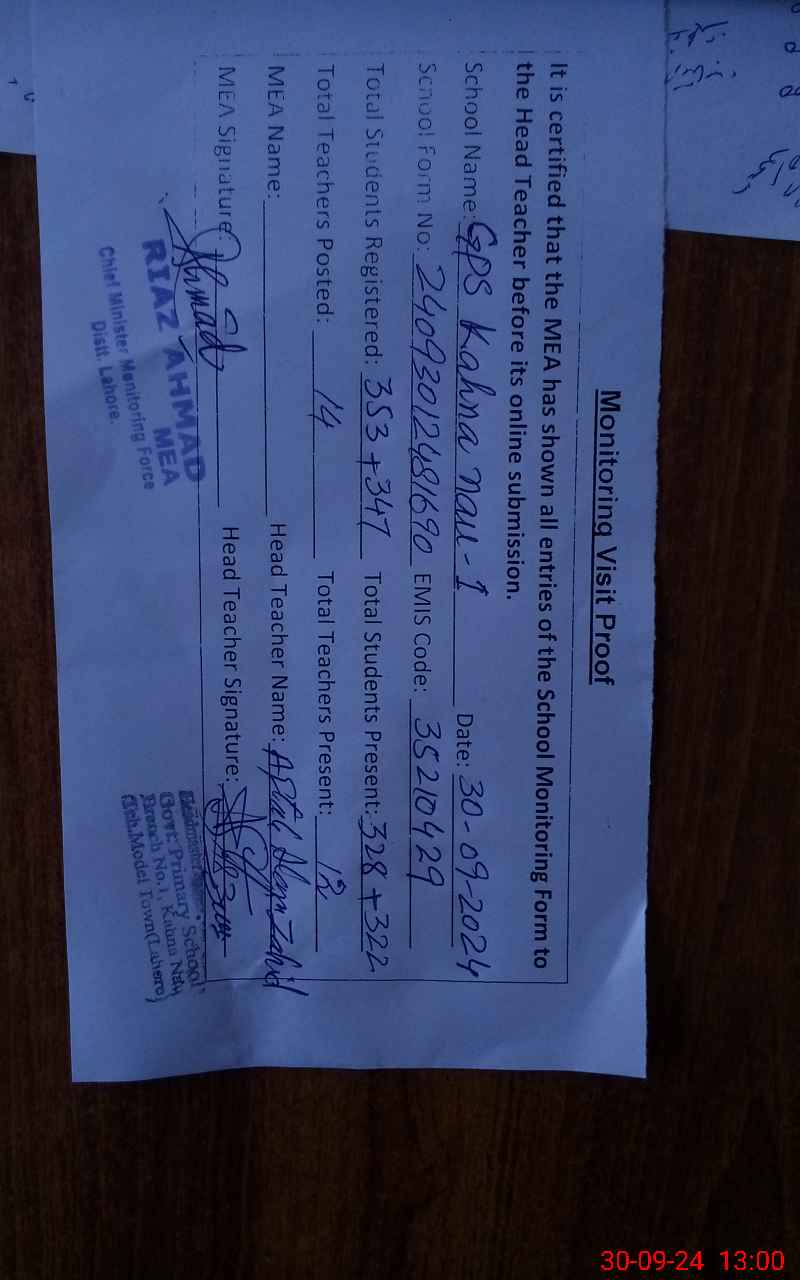 Monitoring Visit Proof
It is certified that the MEA has shown all entries of the School Monitoring Form to
the Head Teacher before its online submission.
School Name: GPS Kahna nau-1 Date: 30-09-2024
School Form No: 24093012481690 EMIS Code: 35210429
Total Students Registered: 353 + 347 Total Students Present: 328 + 322
Total Teachers Posted: 14 Total Teachers Present: 12
MEA Name: Head Teacher Name: Aftab Alam Zahid
MEA Signature: Ahmad Head Teacher Signature:
RIAZ AHMAD
MEA
Chief Minister Monitoring Force
Distt. Lahore.
Govt: Primary School
Branch No.1, Kahna Nau
Teh. Model Town (Lahore)
30-09-24 13:00